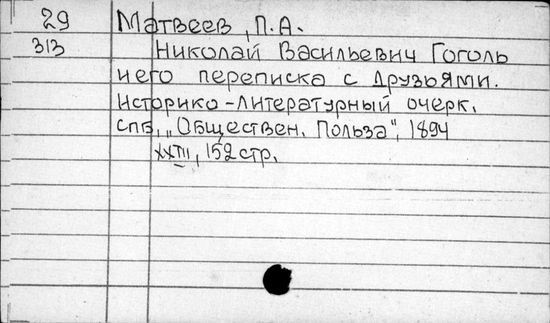 29 Матвеев, П.А.
313 Николай Васильевич Гоголь
и его переписка с друзьями.
Историко-литературный очерк.
СПБ, „Обществен. Польза", 1894
XXIII, 152 стр.